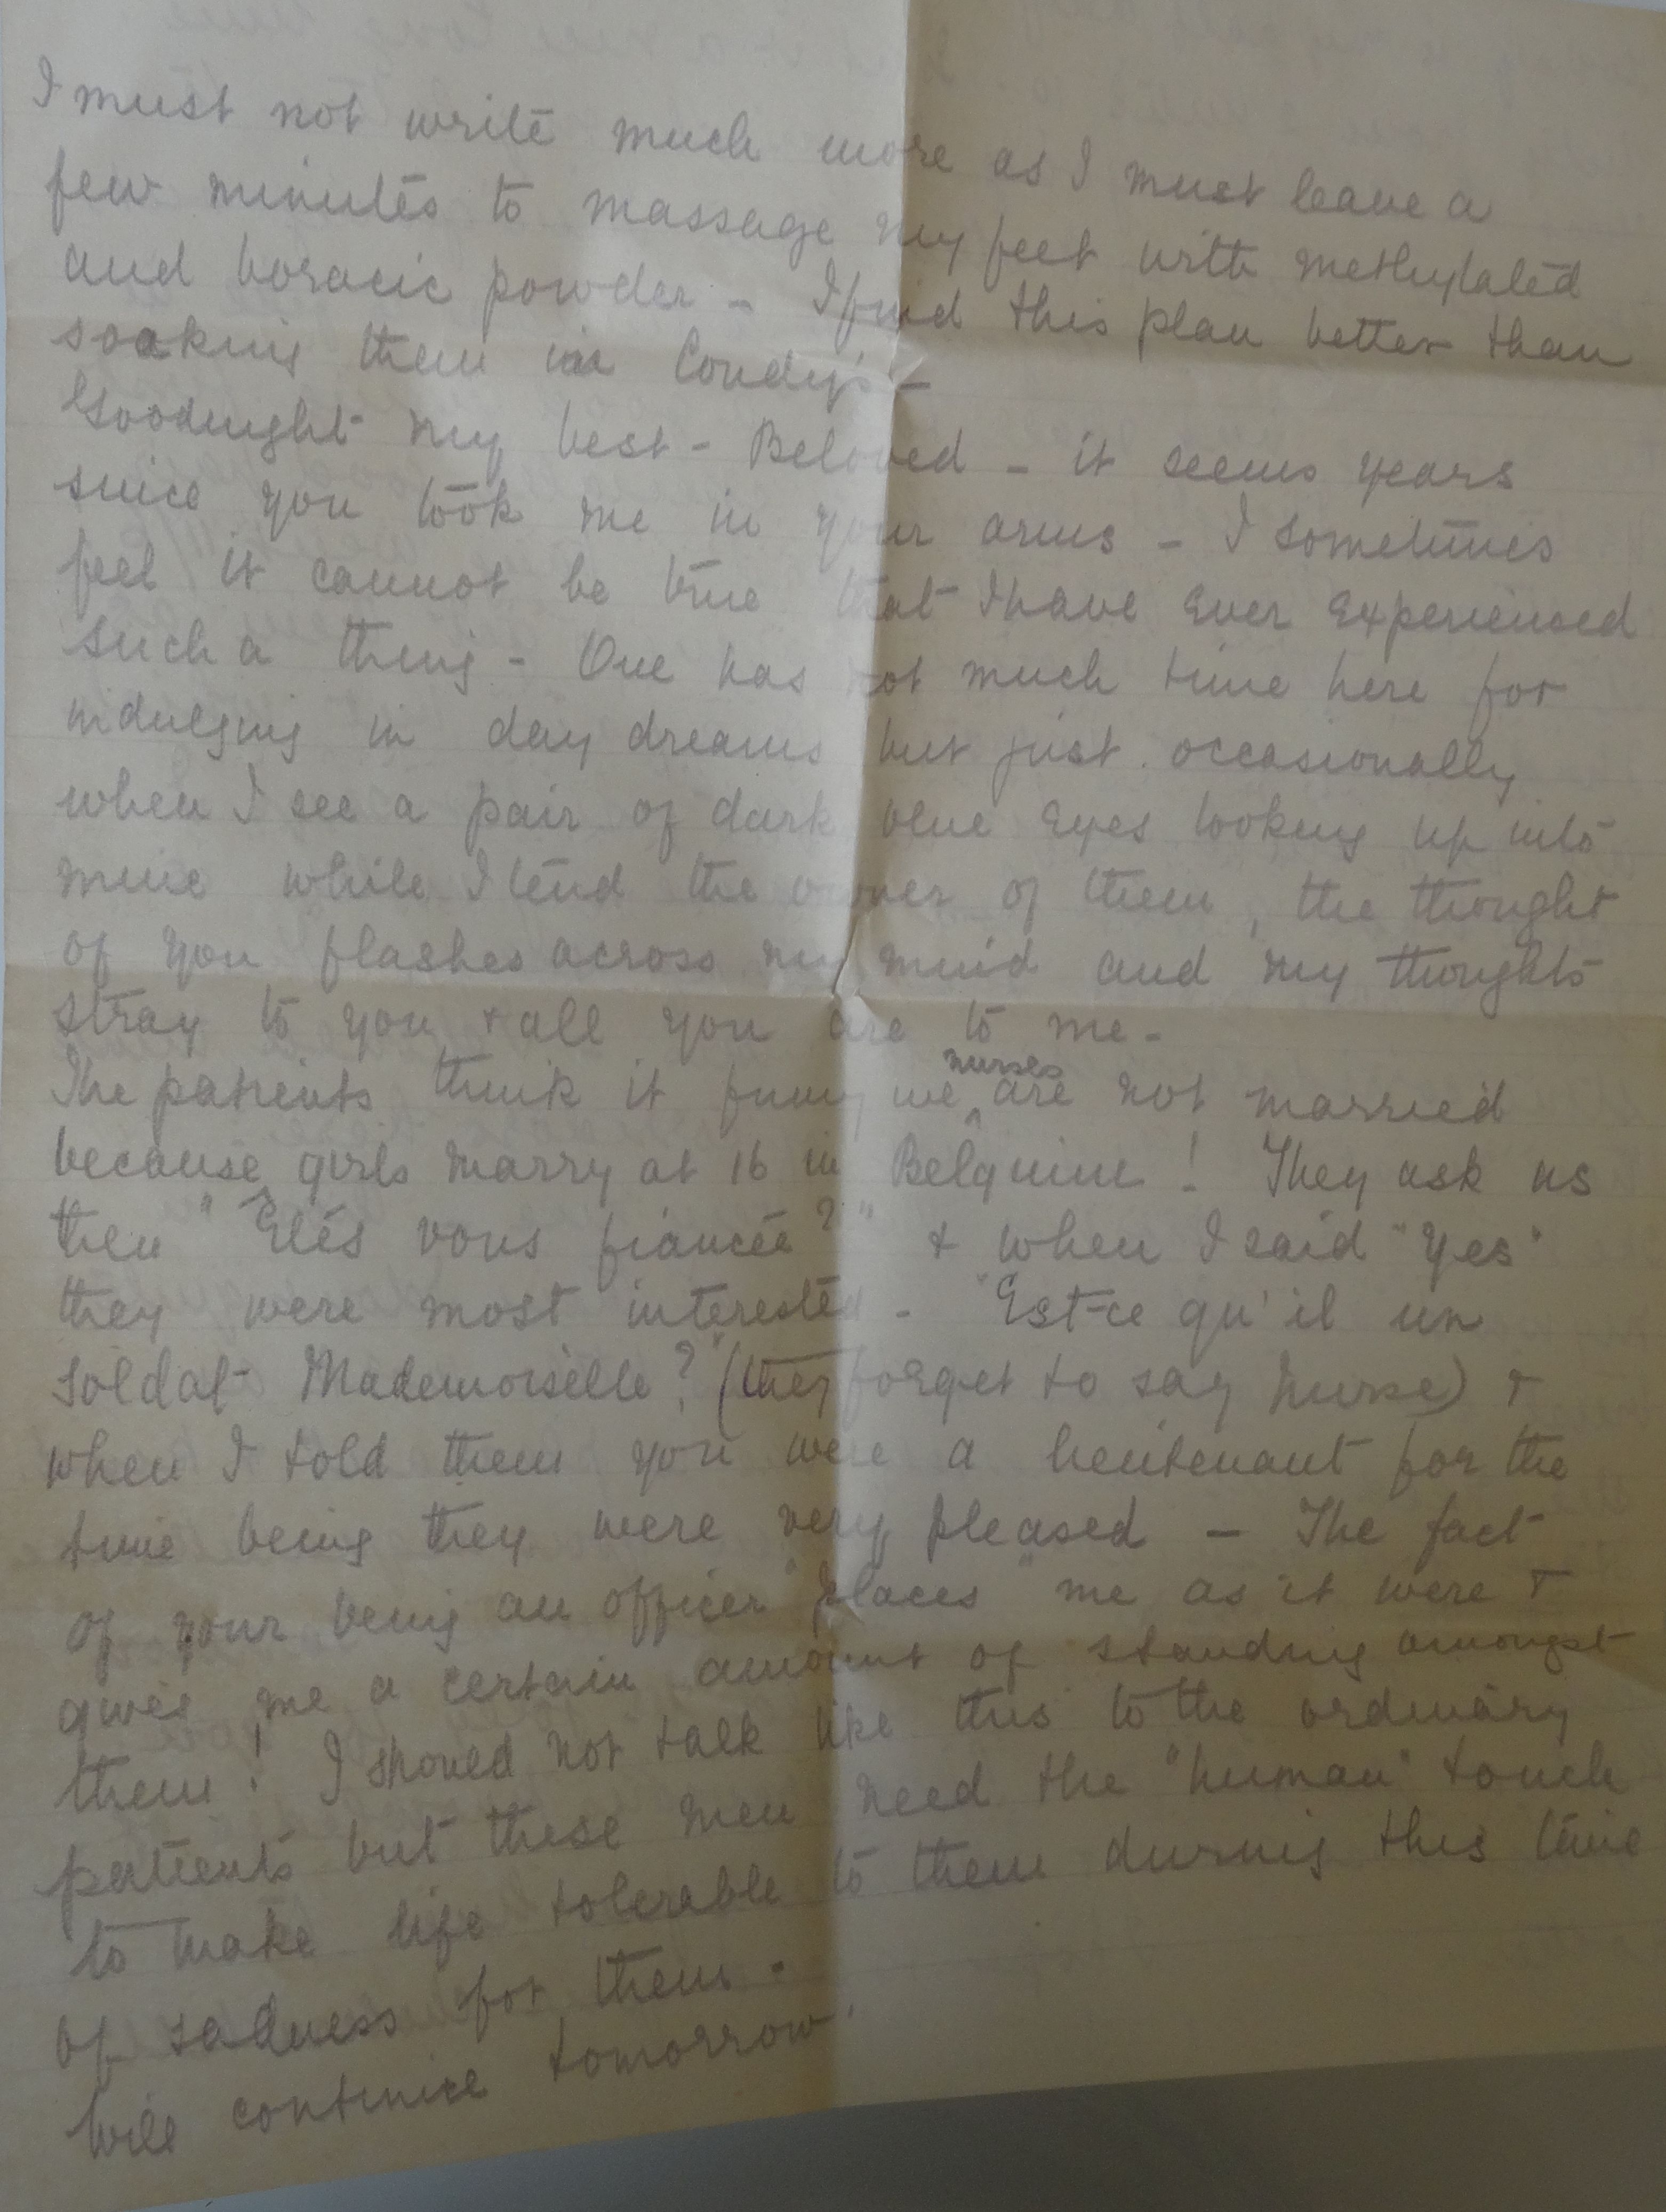 I must not write much more as I must leave a
few minutes to massage my feet with methylated
and boracic powder - I find this plan better than
soaking them in Condy's -
Goodnight my best - Beloved - it seems years
since you took me in your arms - I sometimes
feel it cannot be true that I have ever experienced
such a thing - One has not much time here for
indulging in day dreams but just occasionally
when I see a pair of dark blue eyes looking up into
mine while I tend the owner of them, the thought
of you flashes across my mind and my thoughts
stray to you + all you are to me -
The patients think it funny we nurses are not married
because girls marry at 16 in Belgium! They ask us
then "Êtes vous fiancée?" + when I said "Yes"
they were most interested - "Est-ce qu'il un
soldat Mademoiselle?" (they forget to say Nurse) +
when I told them you were a lieutenant for the
time being they were very pleased - The fact
of your being an officer "places" me as it were +
gives me a certain amount of standing amongst
them! I should not talk like this to the ordinary
patients but these men need the "human" touch
to make life tolerable to them during this time
of sadness for them -
Will continue tomorrow